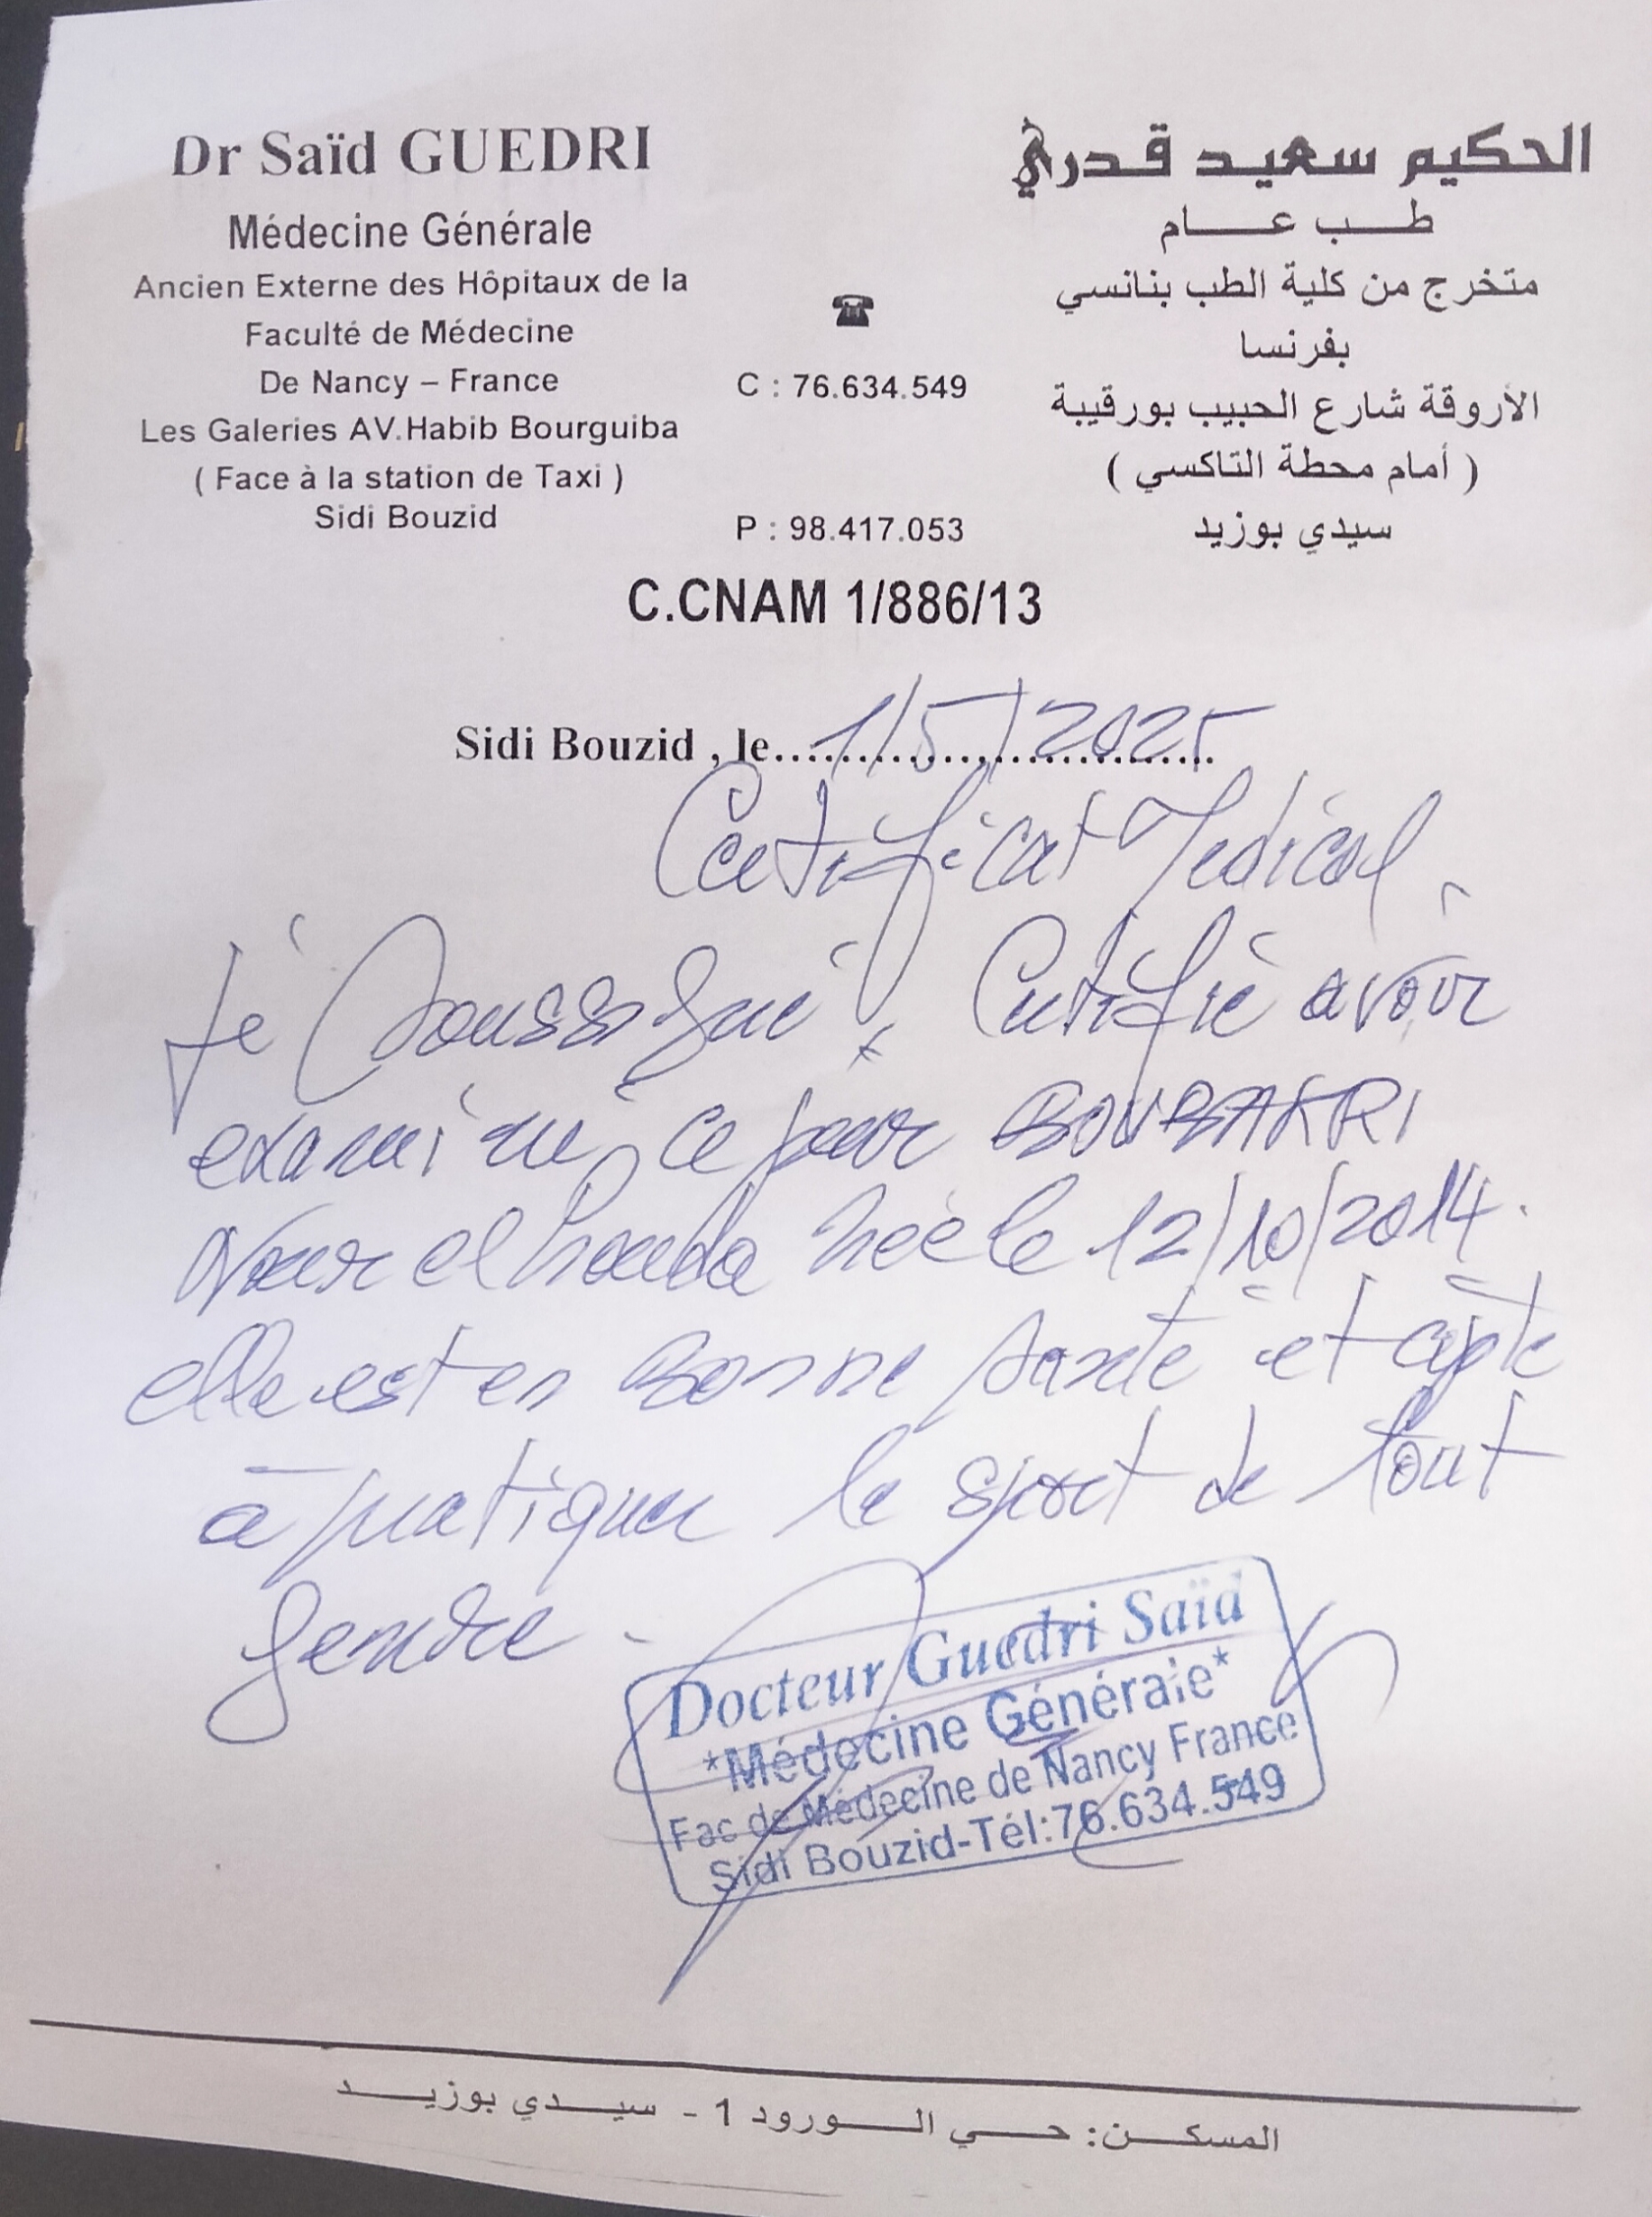 Dr Saïd GUEDRI
Médecine Générale
Ancien Externe des Hôpitaux de la
Faculté de Médecine
De Nancy – France
Les Galeries AV.Habib Bourguiba
( Face à la station de Taxi )
Sidi Bouzid
☎
C : 76.634.549
P : 98.417.053
الحكيم سعيد قدري
طب عام
متخرج من كلية الطب بنانسي
بفرنسا
الأروقة شارع الحبيب بورقيبة
( أمام محطة التاكسي )
سيدي بوزيد
C.CNAM 1/886/13
Sidi Bouzid , le 1/5/2025
Certificat Medical
Je Soussigné, Certifie avoir
examiné ce jour BOUBAKRI
Nour el houda née le 12/10/2014.
elle est en Bonne santé et apte
à pratiquer le sport de tout
genre -
Docteur Guedri Saïd
*Médecine Générale*
Fac de Médecine de Nancy France
Sidi Bouzid-Tél:76.634.549
المسكن: حي الورود 1 - سيدي بوزيد